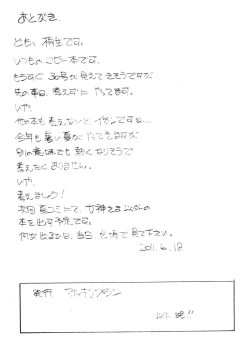 あとがき.
ども、桐生です。
いつものコピー本です.
もうすぐ 30号が見えてきそうですが
先の事は、考えずに やってます。
いや、
他の本も考えないと、イカンですな…
今年も暑い夏が やってきますが
別の意味でも 熱くなりそうで
考えたくありません。
いや、
考えましょう!
次回 夏コミにて、女神さま以外の
本を出す予定です。
何が出るかは、当日、会場で見て下さい。
2011.6.18
発行 マルキリプラン
以下 略!!